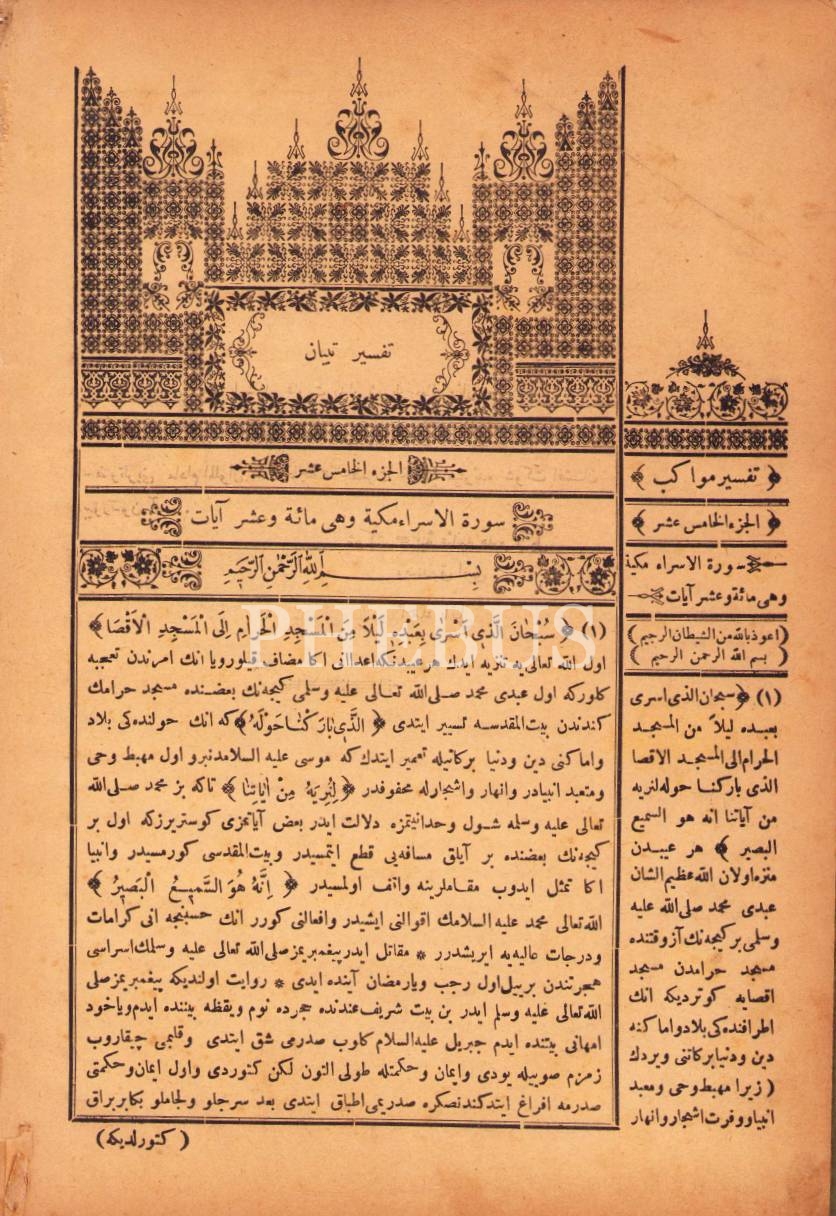 تفسير تبيان
الجزء الخامس عشر
سورة الاسراء مكية وهى مائة وعشر آيات
بِسْمِ اللهِ الرَّحْمٰنِ الرَّحِيمِ
(١) ﴿ سُبْحَانَ الَّذِى اَسْرٰى بِعَبْدِهِ لَيْلًا مِنَ الْمَسْجِدِ الْحَرَامِ اِلَى الْمَسْجِدِ الْاَقْصَا ﴾
اول الله تعالى يه تنزيه ايدك هر عيبدنكه اعدائى اكا مضاف قيلورويا انك امرندن تعجبه
كلورکه اول عبدى محمد صلى الله تعالى عليه وسلمى كيجه نك بعضنده مسجد حرامك
كندندن بيت المقدسه تسيير ايتدى ﴿ الَّذِى بَارَكْنَا حَوْلَهُ ﴾ كه انك حولنده كى بلاد
واماكنى دين ودنيا بركاتيله تعمير ايتدك كه موسى عليه السلامدنبرو اول مهبط وحى
ومتعبد انبيادر وانهار واشجارله محفوفدر ﴿ لِنُرِيَهُ مِنْ اٰيَاتِنَا ﴾ تاكه بز محمد صلى الله
تعالى عليه وسلمه شول وحدانيتمزه دلالت ايدر بعض آياتمزى كوستريرزكه اول بر
كيجه نك بعضنده بر آيلق مسافه يى قطع ايتمسيدر وبيت المقدسى كورمسيدر وانبيا
اكا تمثل ايدوب مقاملرينه واقف اولمسيدر ﴿ اِنَّهُ هُوَ السَّمِيعُ الْبَصِيرُ ﴾
الله تعالى محمد عليه السلامك اقوالنى ايشيدر وافعالنى كورر انك حسبنجه انى كرامات
ودرجات عاليه يه ايريشدرر * مقاتل ايدر پيغمبريمز صلى الله تعالى عليه وسلمك اسراسى
هجرتندن بر ييل اول رجب ويا رمضان آينده ايدى * روايت اولنديكه پيغمبريمز صلى
الله تعالى عليه وسلم ايدر بن بيت شريف عندنده حجرده نوم ويقظه بيننده ايدم وياخود
امهانى بيتنده ايدم جبريل عليه السلام كلوب صدرمى شق ايتدى وقلبمى چيقاروب
زمزم صوييله يودى وايمان وحكمتله طولى التون لكن كتوردى واول ايمان وحكمتى
صدرمه افراغ ايتدكدنصكره صدريمى اطباق ايتدى بعد سرجلو ولجاملو بكا بر براق
( كتورلديكه )
تفسير مواكب
الجزء الخامس عشر
سورة الاسراء مكية
وهى مائة وعشر آيات
(اعوذ بالله من الشيطان الرجيم)
( بسم الله الرحمن الرحيم )
(١) ﴿ سبحان الذى اسرى
بعبده ليلاً من المسجد
الحرام الى المسجد الاقصا
الذى باركنا حوله لنريه
من آياتنا انه هو السميع
البصير ﴾ هر عيبدن
منزه اولان الله عظيم الشان
عبدى محمد صلى الله عليه
وسلمى بر كيجه نك آز وقتنده
مسجد حرامدن مسجد
اقصايه كوترديكه انك
اطرافنده كى بلاد واماكنه
دين ودنيا بركاتنى ويردك
( زيرا مهبط وحى ومعبد
انبيا ووفرت اشجار وانهار
PHEBUS